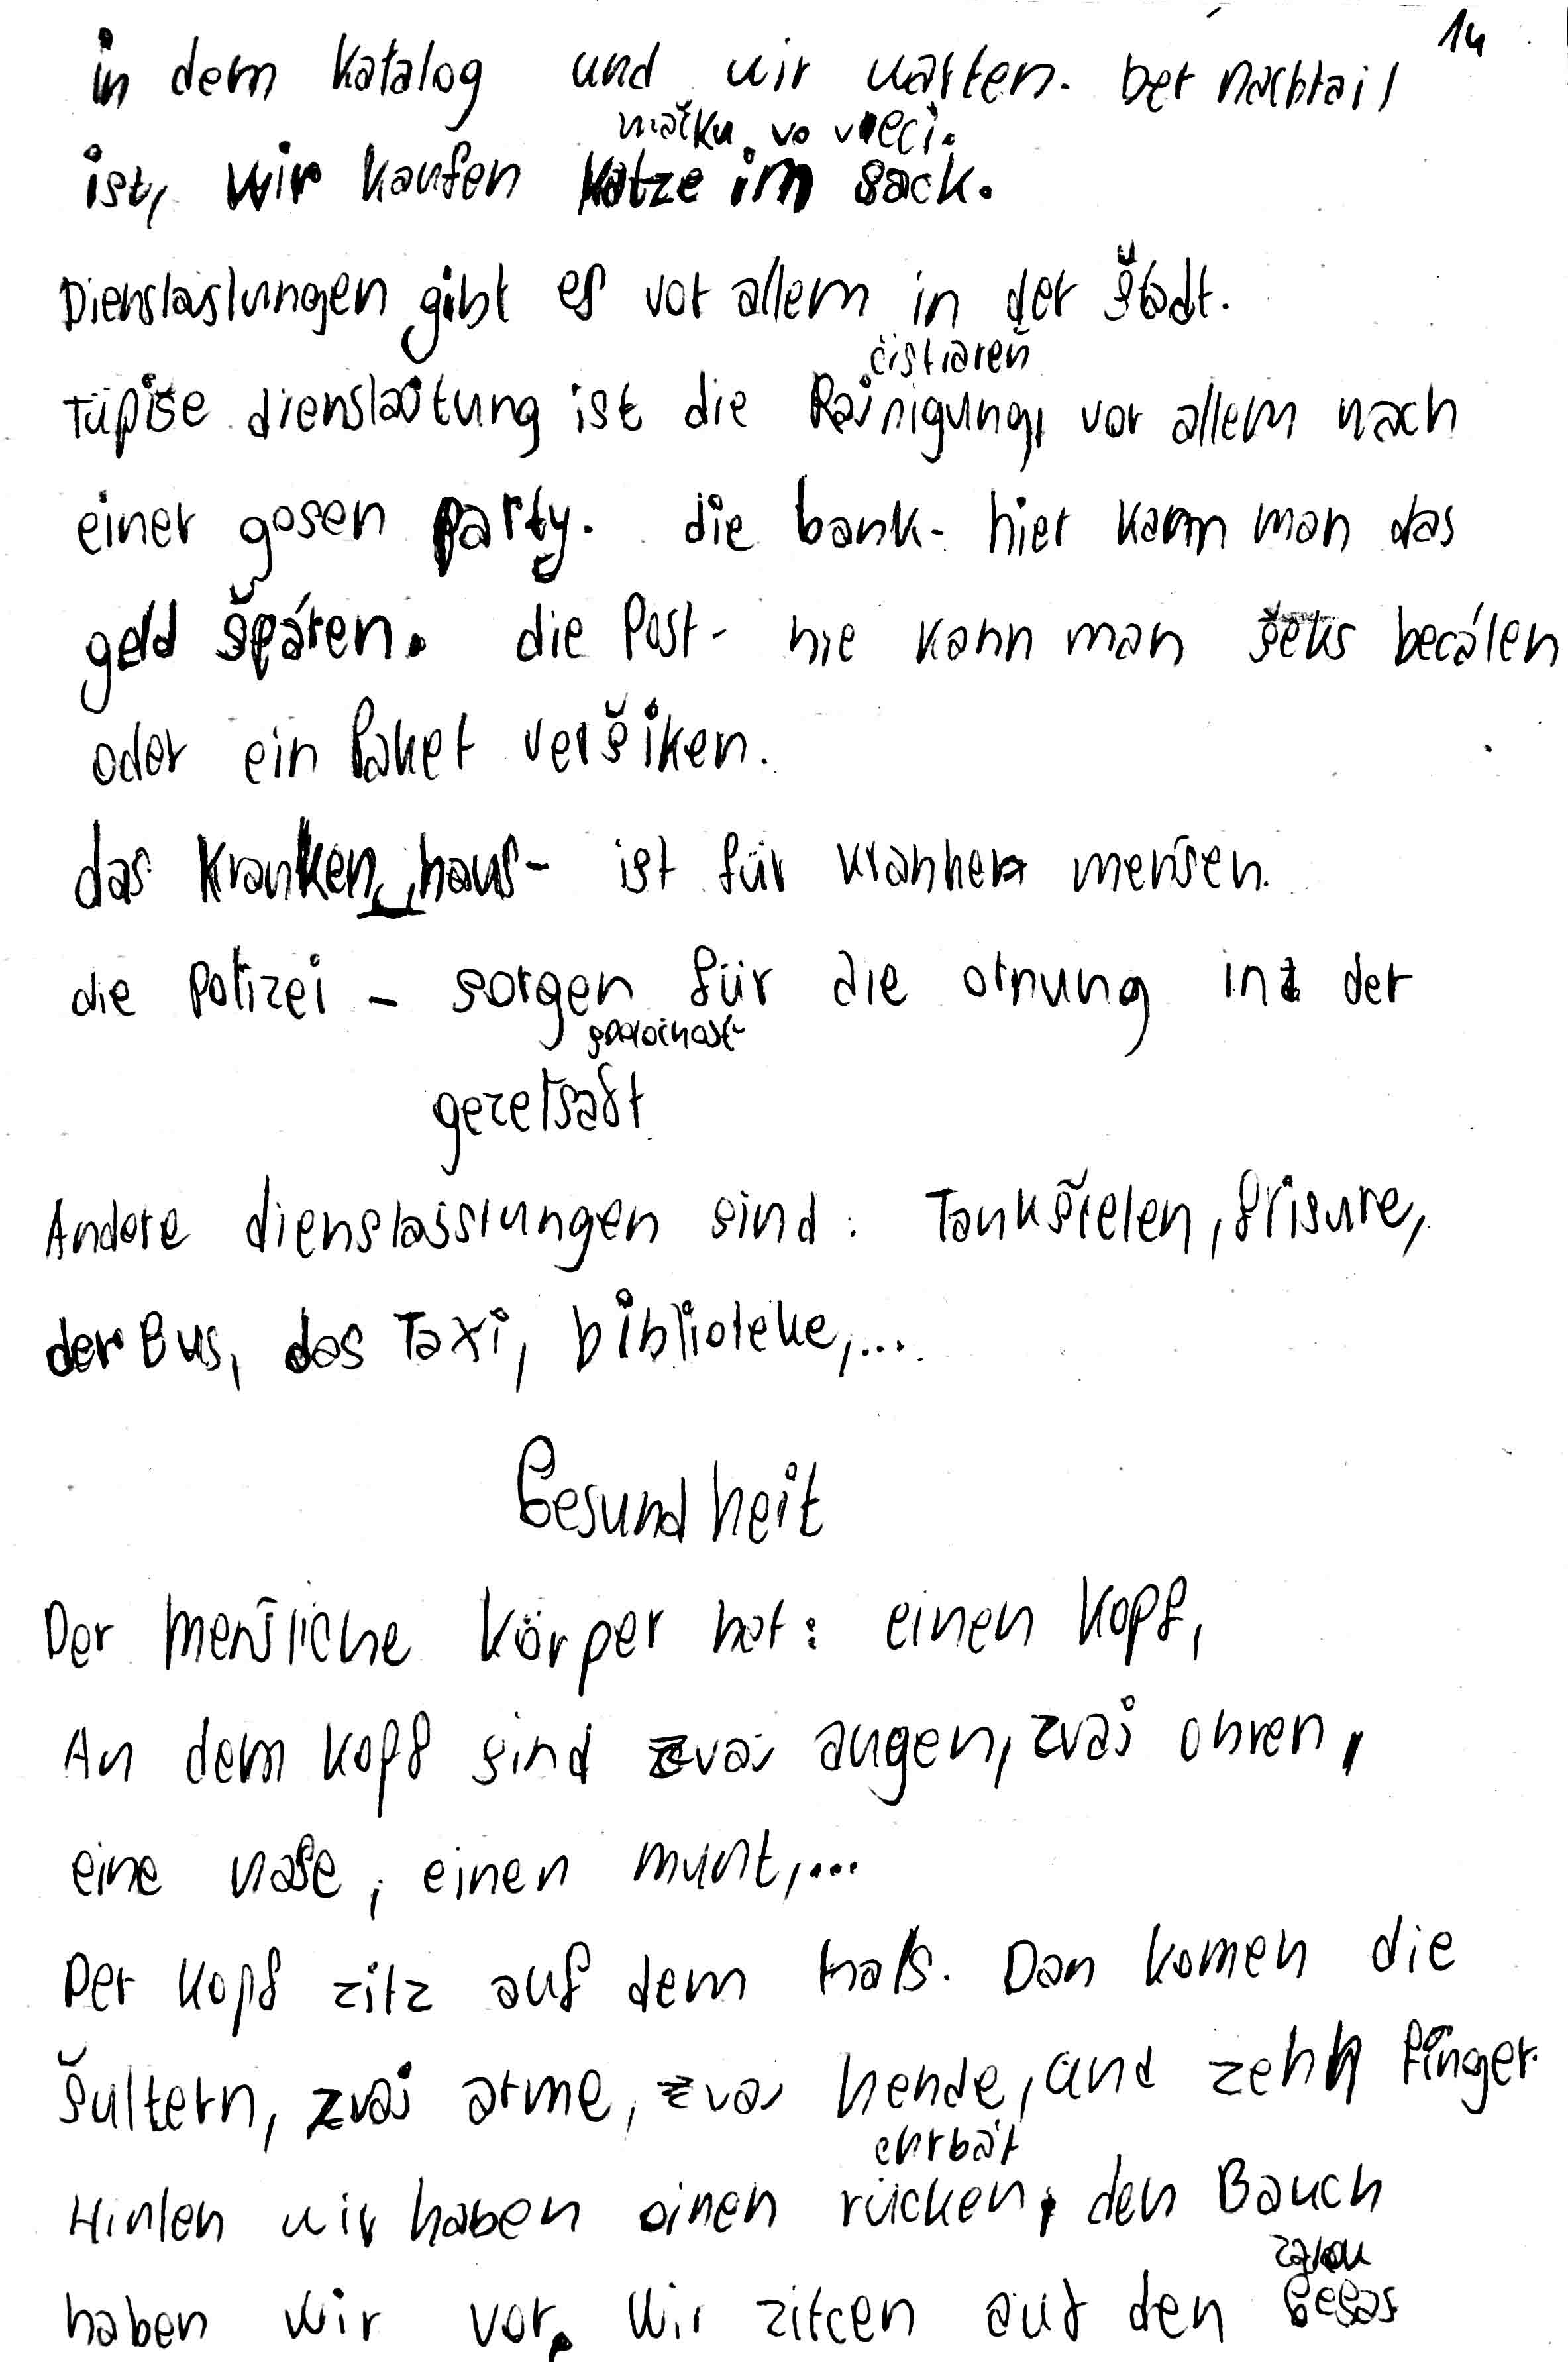 14
in dem Katalog und wir warten. Der nachtail
mačku vo vreci.
ist, wir kaufen Katze im Sack.
Dienslaslungen gibt es vor allem in der Štadt.
čistiareň
Tüpiše dienslaitung ist die Rainigung, vor allem nach
einer gosen party. die bank- hier kann man das
geld špáren. die Post- hie kann man šeks becálen
oder ein Paket veršiken.
das Krankenhaus- ist für kranken menšen.
die Polizei - sorgen für die otnung in der
spoločnosť
gezelšaft
Andere dienslaisstungen sind: Tankštelen, frisure,
der Bus, das Taxi, biblioteke,...
Gesundheit
Der menšliche Körper hat: einen Kopf,
An dem Kopf sind zvai augen, zvai ohren,
eine nase, einen munt,...
Der Kopf zitz auf dem hals. Dan komen die
šultern, zvai arme, zvai hende, und zehn Finger.
chrbát
Hinten wir haben einen rücken, den Bauch
haben wir vor. Wir zitcen auf den